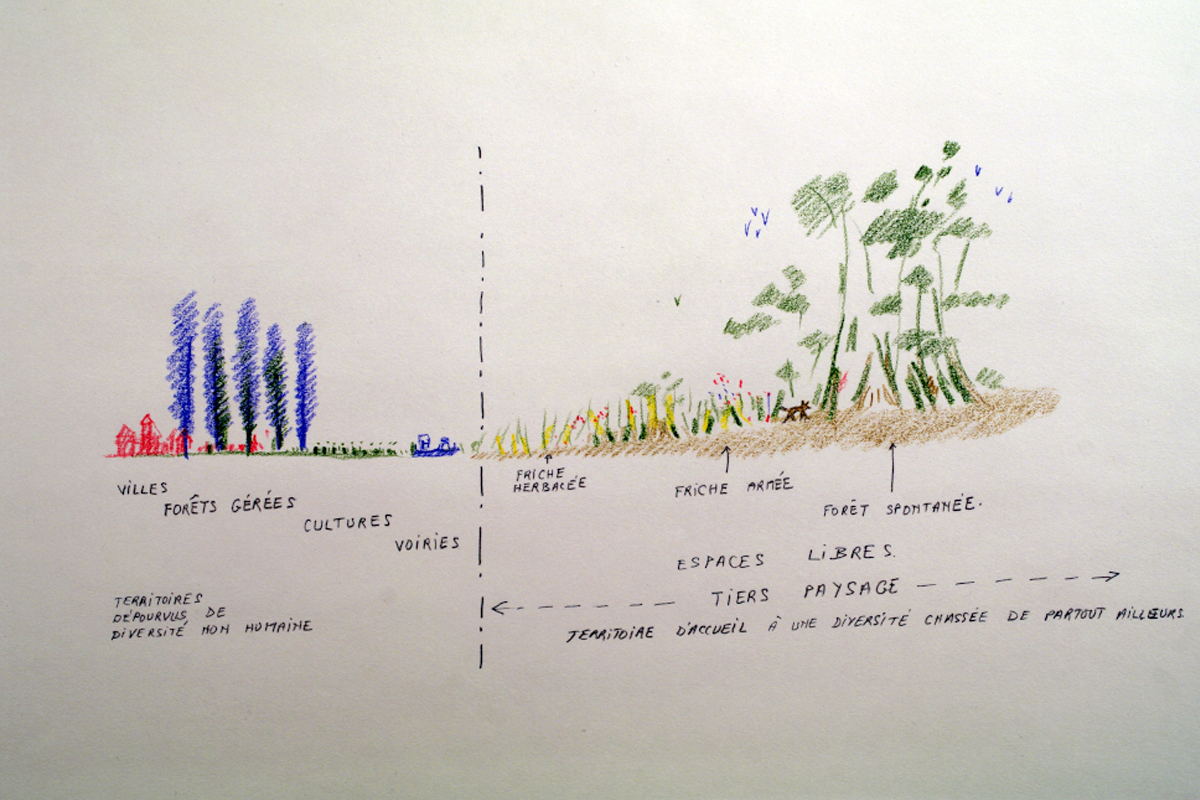 VILLES
FORÊTS GÉRÉES
CULTURES
VOIRIES
TERRITOIRES
DÉPOURVUS DE
DIVERSITÉ NON HUMAINE
FRICHE
HERBACÉE
FRICHE ARMÉE
FORÊT SPONTANÉE.
ESPACES LIBRES.
TIERS PAYSAGE
TERRITOIRE D'ACCUEIL À UNE DIVERSITÉ CHASSÉE DE PARTOUT AILLEURS